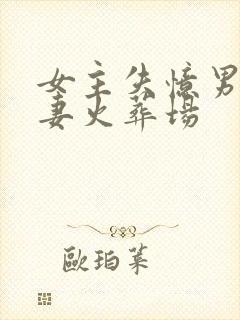 女主失憶男
妻火葬場
歐珀萊